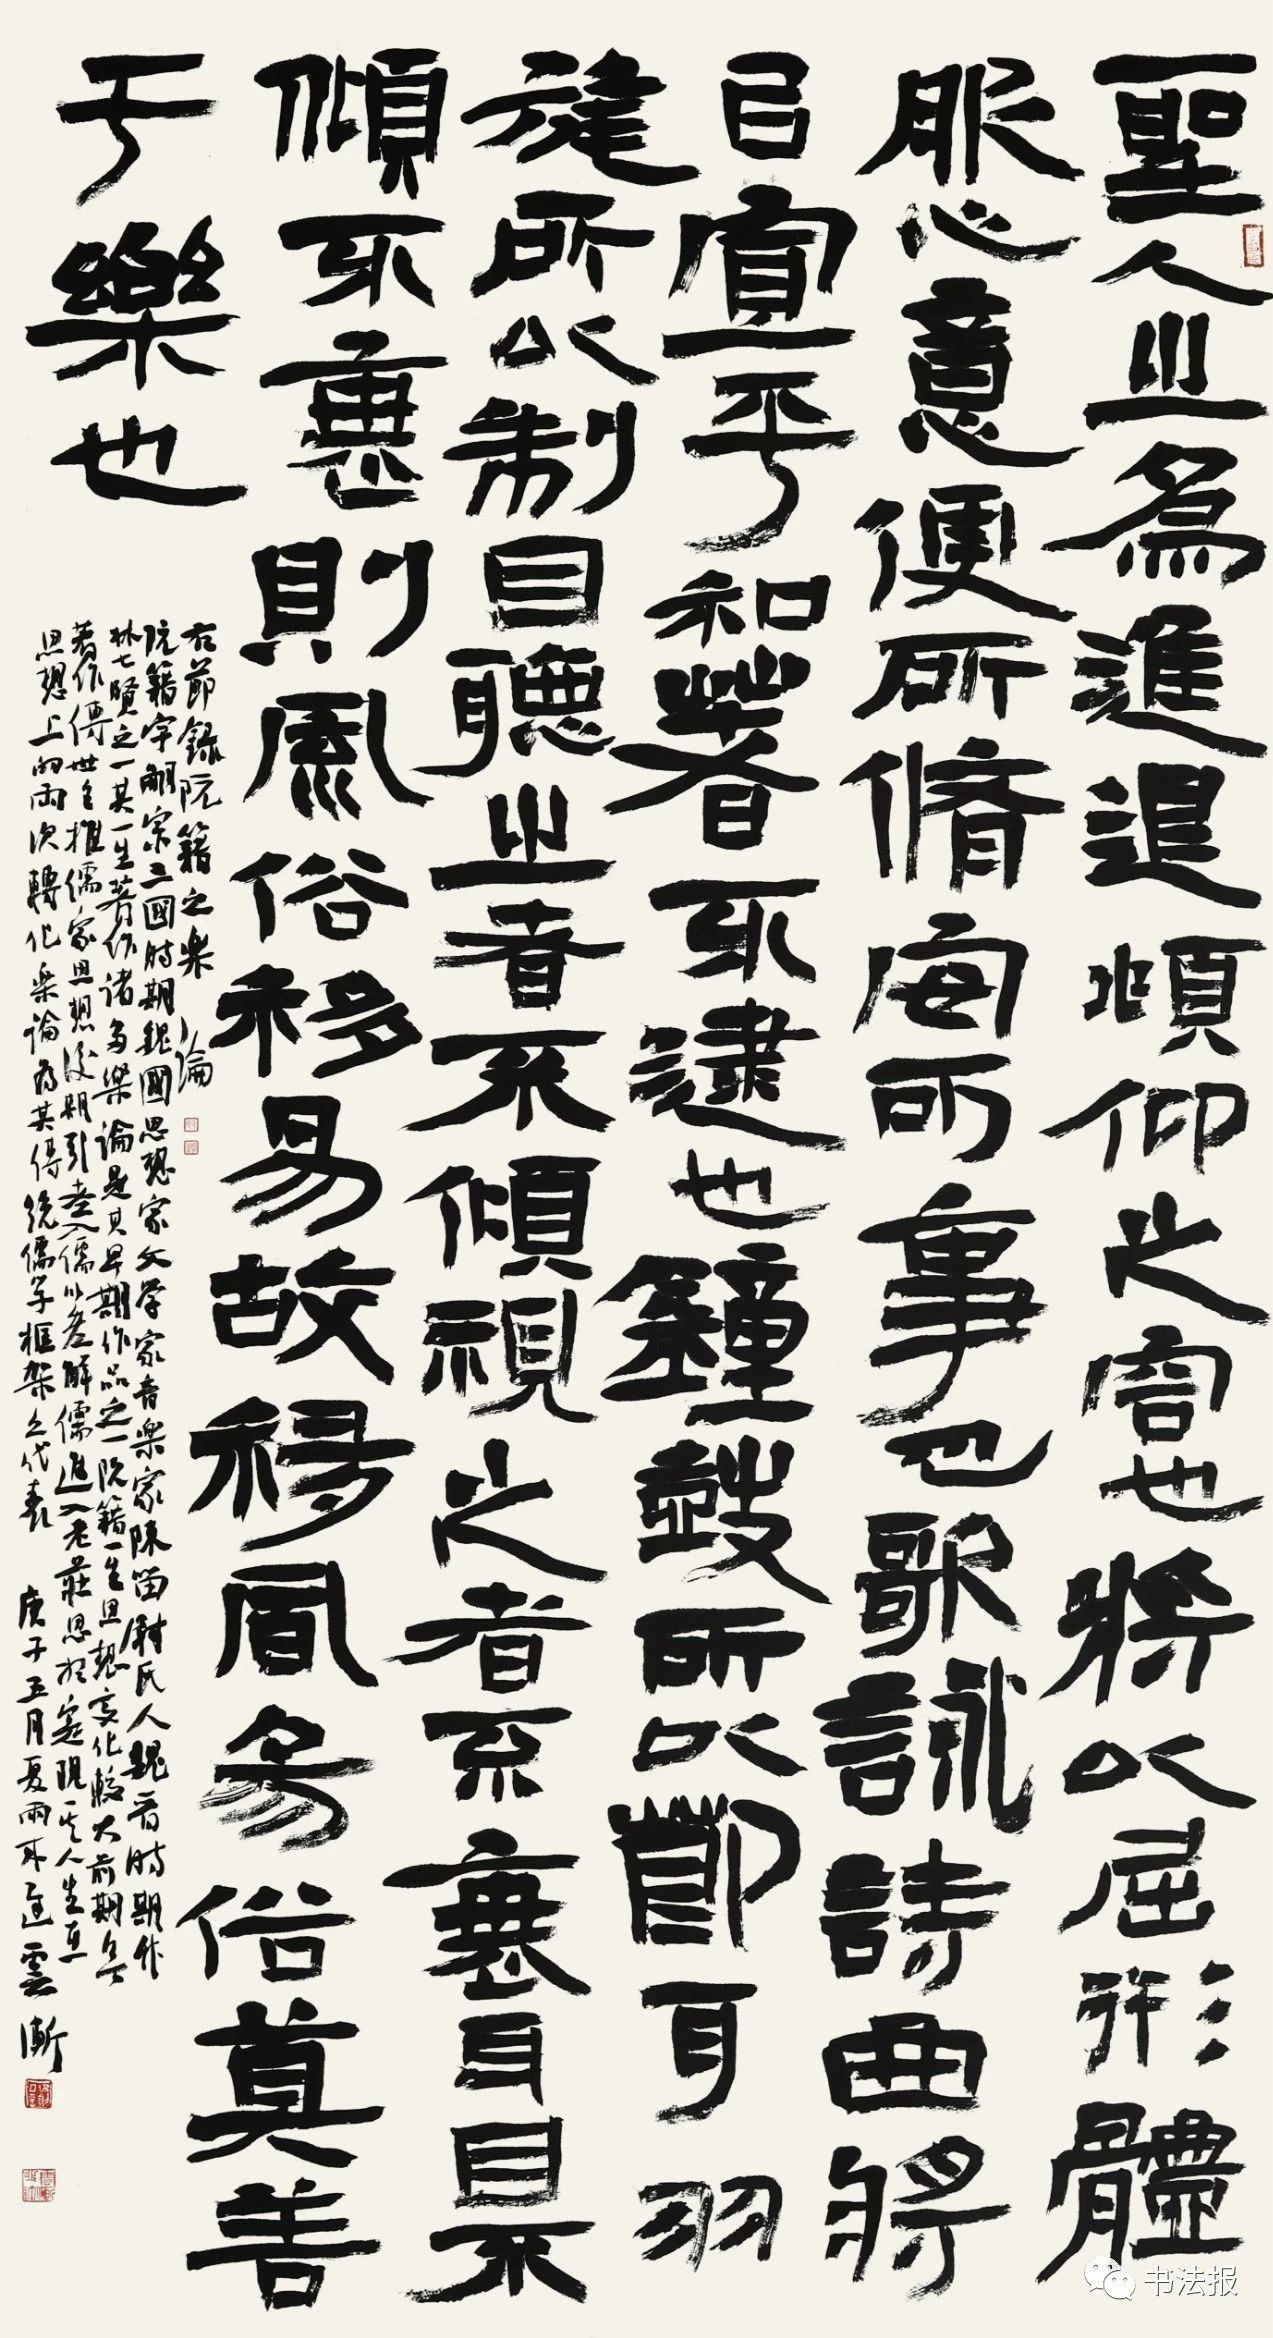 聖人之為進退頫仰之容也將以屈形體
服心意便所脩安所事也歌詠詩曲將
以宣平和著不逮也鐘鼓所以節耳羽
旄所以制目聽之者不傾視之者不衰耳目不
傾不衰則風俗移易故移風易俗莫善
于樂也
右節錄阮籍之樂論
阮籍字嗣宗三國時期魏國思想家文學家音樂家陳留尉氏人魏晉時期竹
林七賢之一其一生著作諸多樂論是其早期作品之一阮籍一生思想變化較大前期
著作傳世主推儒家思想後期引老入儒以老解儒進入老莊思想人生
思想上的兩次轉化樂論為其傳統儒學框架之代表 庚子五月夏雨
书法报